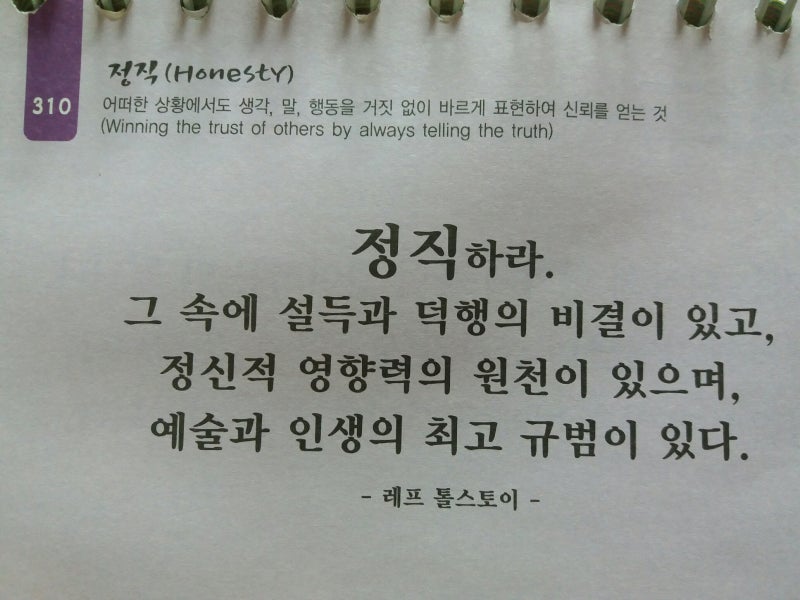 310
정직(Honesty)
어떠한 상황에서도 생각, 말, 행동을 거짓 없이 바르게 표현하여 신뢰를 얻는 것
(Winning the trust of others by always telling the truth)
정직하라.
그 속에 설득과 덕행의 비결이 있고,
정신적 영향력의 원천이 있으며,
예술과 인생의 최고 규범이 있다.
- 레프 톨스토이 -